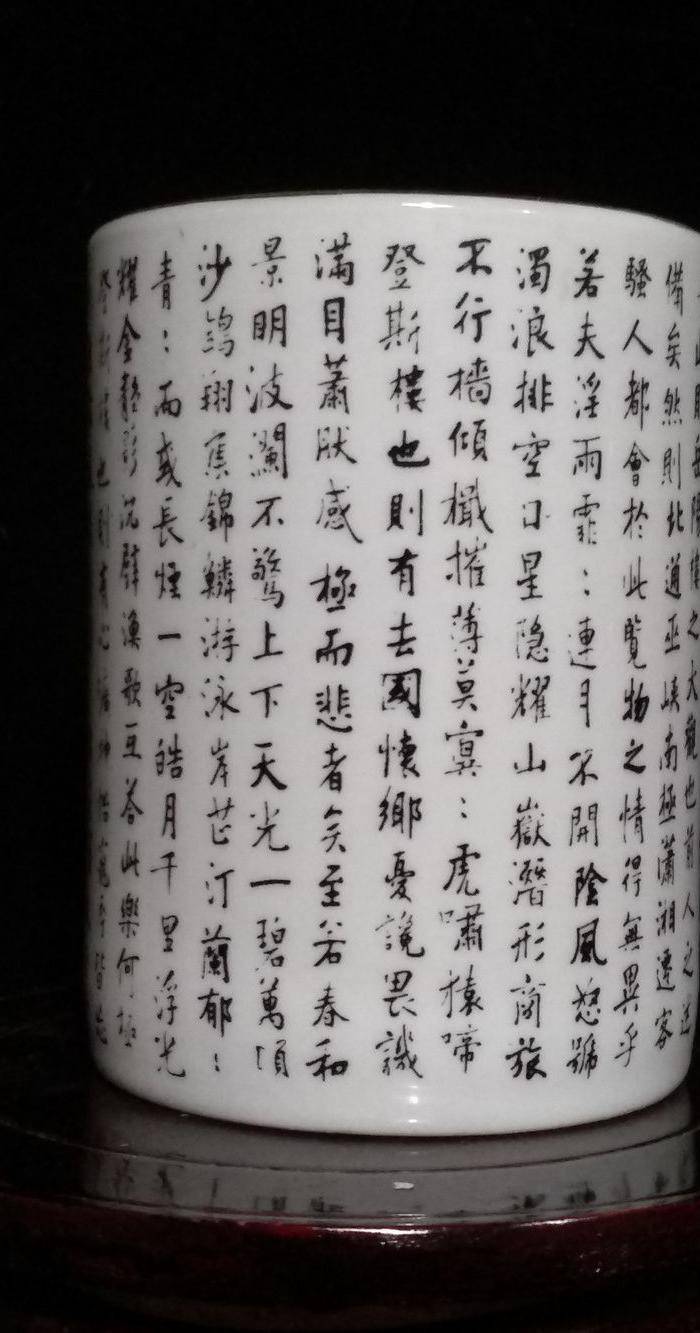 此則岳陽樓之大觀也前人之述
備矣然則北通巫峽南極瀟湘遷客
騷人都會於此覽物之情得無異乎
若夫淫雨霏：連月不開陰風怒號
濁浪排空日星隐耀山嶽潛形商旅
不行檣傾檝摧薄莫冥：虎嘯猿啼
登斯樓也則有去國懷鄉憂讒畏譏
滿目蕭肰感極而悲者矣至若春和
景明波瀾不驚上下天光一碧萬頃
沙鷗翔集錦鱗游泳岸芷汀蘭郁：
青：而或長煙一空皓月千里浮光
耀金靜影沉璧漁歌互荅此樂何極
登斯樓也則有心曠神怡寵辱皆忘